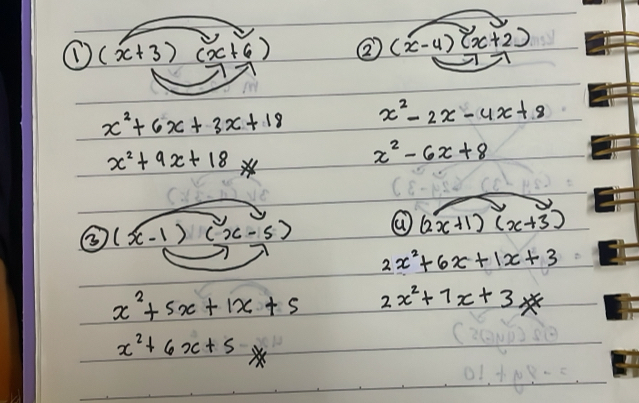 ① (x+3) (x+6)
x² + 6x + 3x + 18
x² + 9x + 18
② (x-4) (x+2)
x² - 2x - 4x + 8
x² - 6x + 8
③ (x-1) (x-5)
x² + 5x + 1x + 5
x² + 6x + 5
④ (2x+1) (x+3)
2x² + 6x + 1x + 3
2x² + 7x + 3